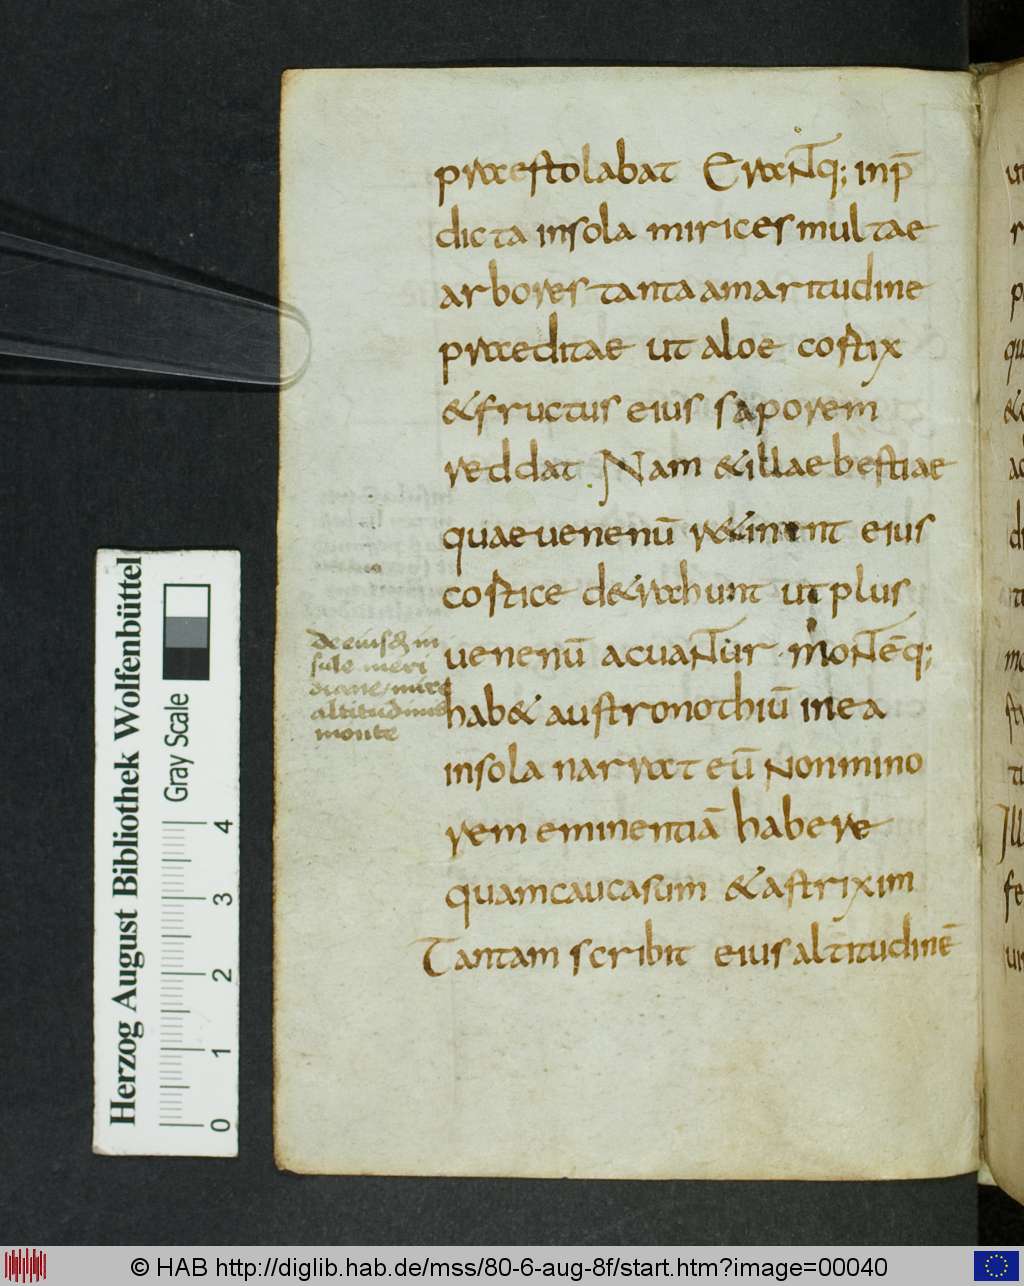 praestolabat Erantq; inp̄
dicta insola mirices multae
arbores tanta amaritudine
praeditae ut aloe costix
& fructus eius saporem
reddat . Nam & illae bestiae
quae uenenū r&inent eius
costice d&rahunt ut plus
uenenū acuantur · montēq;
hab& austronothiū in ea
insola narrat eū non mino
rem eminentiā habere
quam caucasum & astrixim
Tantam scribit eius altitudinē
sule meri
diane mire
altitudinis
monte
Herzog August Bibliothek Wolfenbüttel
Gray Scale
0 1 2 3 4
© HAB http://diglib.hab.de/mss/80-6-aug-8f/start.htm?image=00040